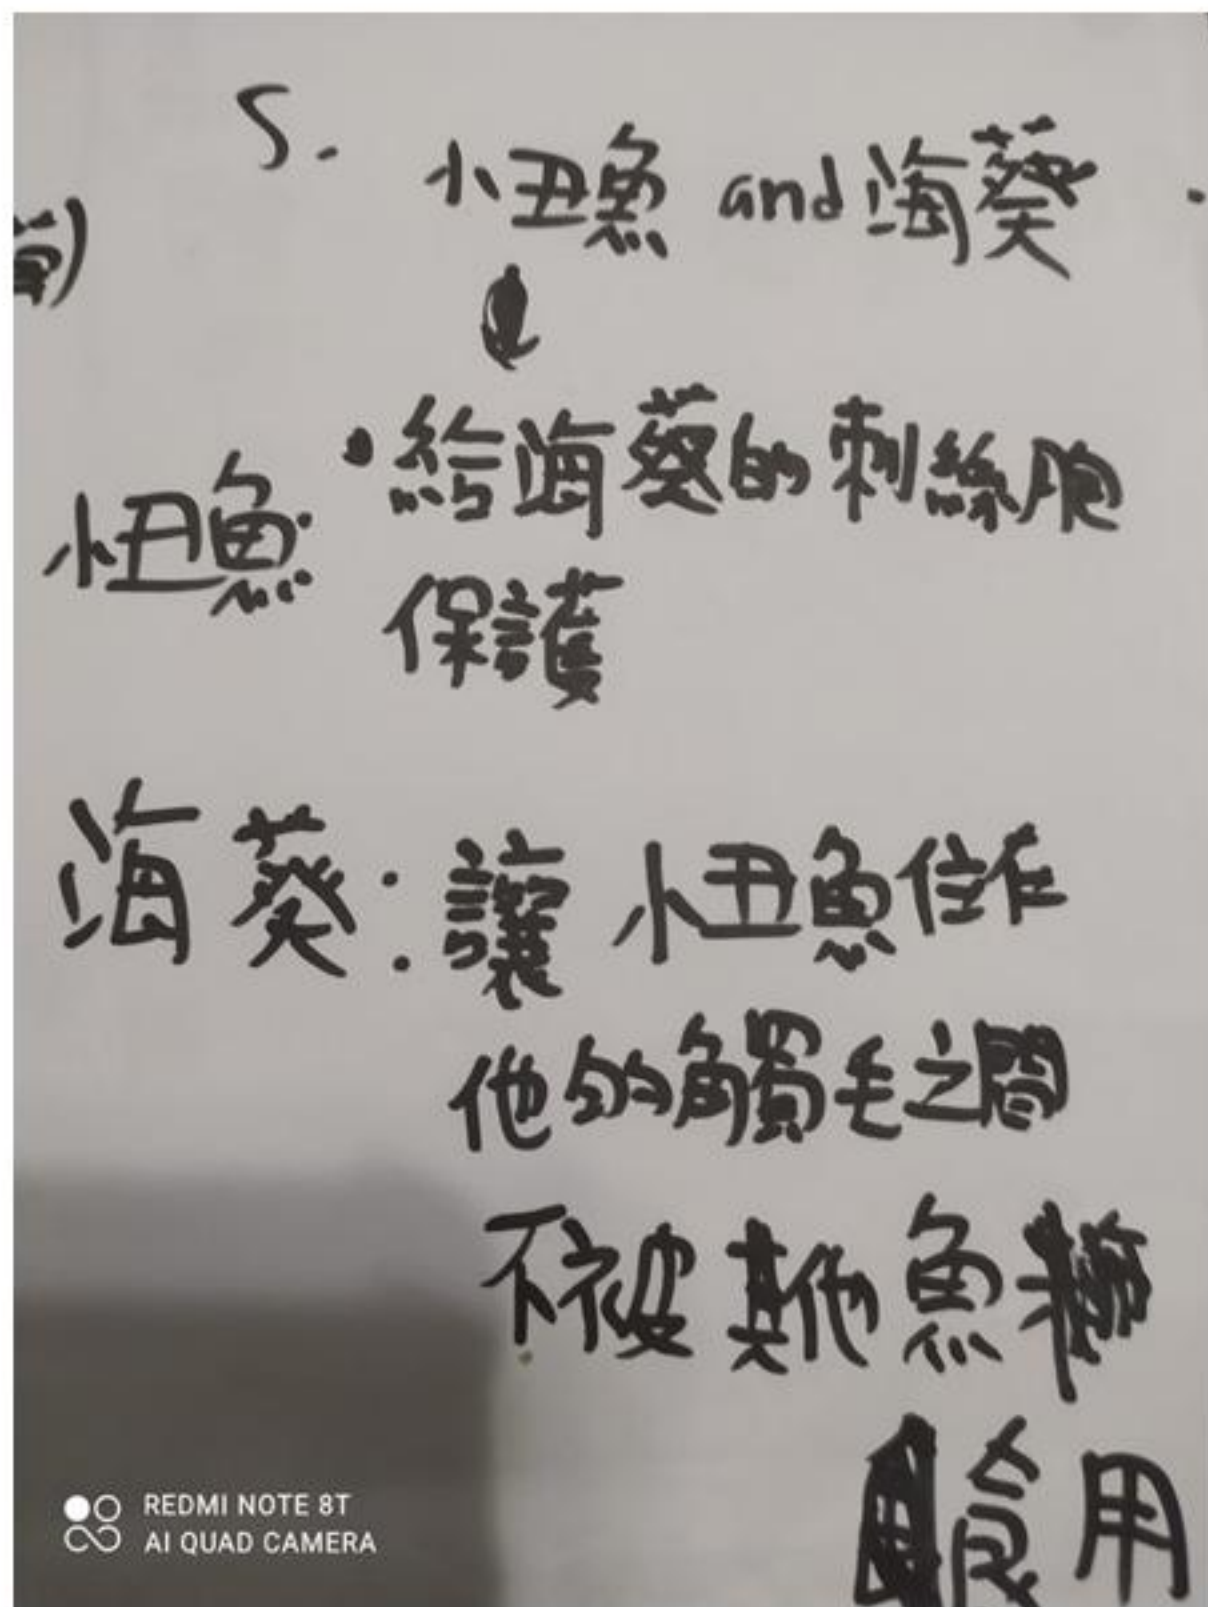 5. 小丑魚 and 海葵
小丑魚・給海葵的刺絲胞
保護
海葵:讓小丑魚住在
他的觸毛之間
不被其他魚
食用
REDMI NOTE 8T
AI QUAD CAMERA